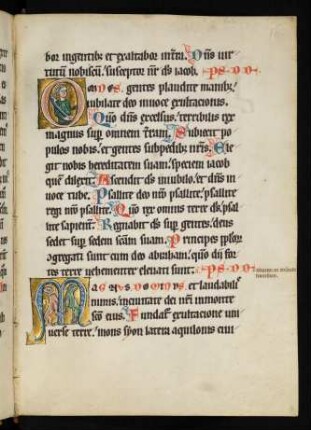 bor in gentib; et exaltabor in t̄ra. Dn̄s uir
tutū nobiscū. susceptor nr̄ ds̄ iacob. ps. d. d.
Omnes gentes plaudite manib;
iubilate deo in uoce exultationis.
Qm̄ dn̄s excelsus. terribilis rex
magnus sup omnem t̄ram. Subiecit po
pulos nobis. et gentes sub pedib; nr̄is. Ele
git nobis hereditatem suam. speciem iacob
quē dilexit. Ascendit ds̄ in iubilo. et dn̄s in
uoce tube. Psallite deo nr̄o psallite. psallite
regi nr̄o psallite. Qm̄ rex omnis terre ds̄. psal
lite sapient̄. Regnabit ds̄ sup gentes. deus
sedet sup sedem sc̄am suam. Principes pp̄lor̄
 congregati sunt cum deo abraham. quō dii for
tes terre uehementer eleuati sunt. ps. d. d.
Magnus dominus et laudabil
nimis. in ciuitate dei nr̄i in monte
sc̄o eius. Fundat̄ exultatione uni
uerse terre. mons syon latera aquilonis ciui